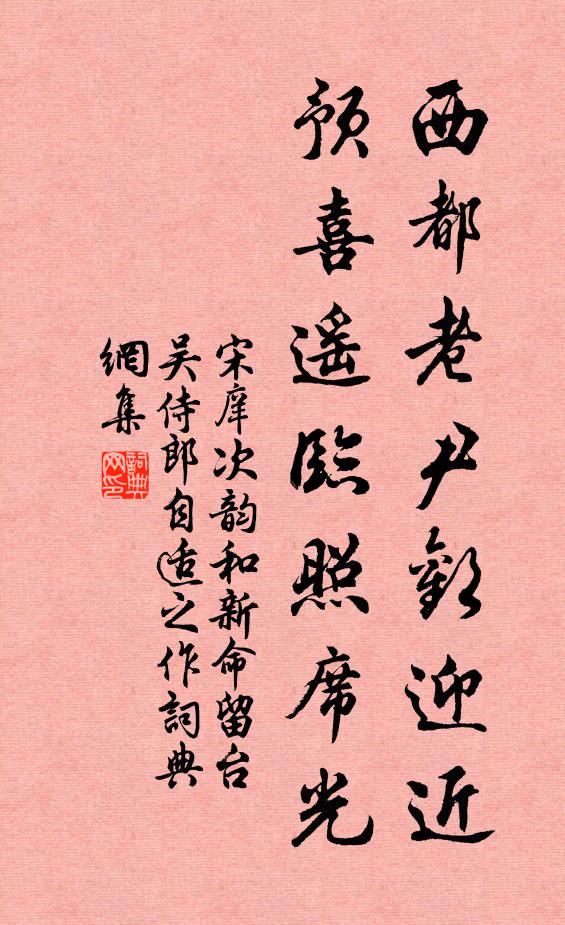 西都老尹歡迎近
預喜遥臨照席光
宋庠次韵和新命留台
吴侍郎自适之作詞典
網集
詞典
网印